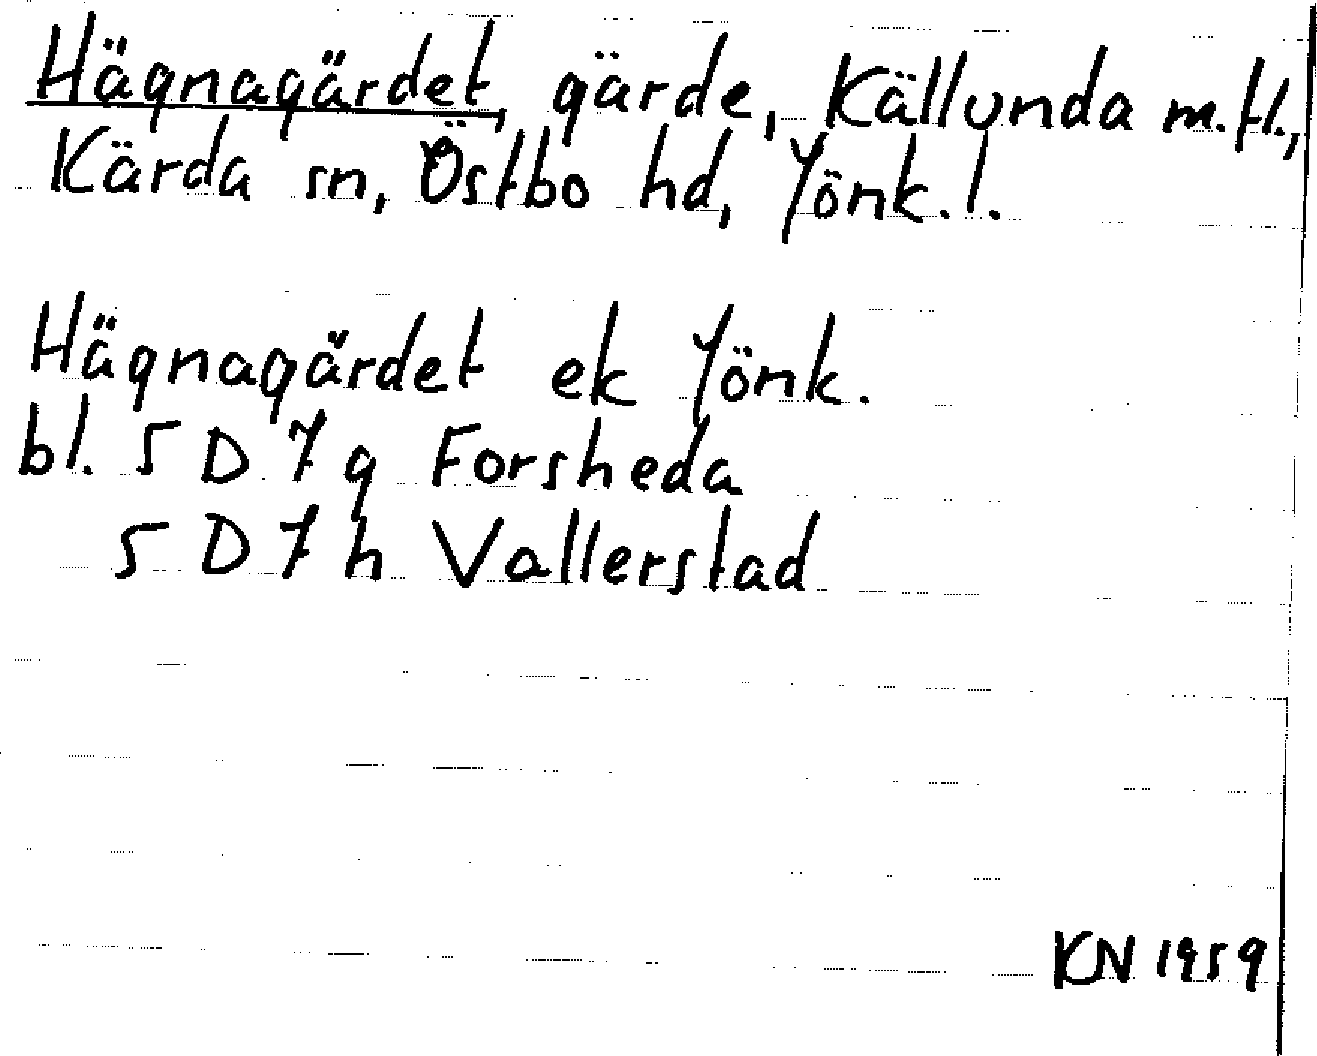 Hägnagärdet, gärde, Källunda m.fl.,
Kärda sn, Östbo hd, Jönk.l.
Hägnagärdet ek Jönk.
bl. 5 D 7 g Forsheda
5 D 7 h Vallerstad
KN 1959